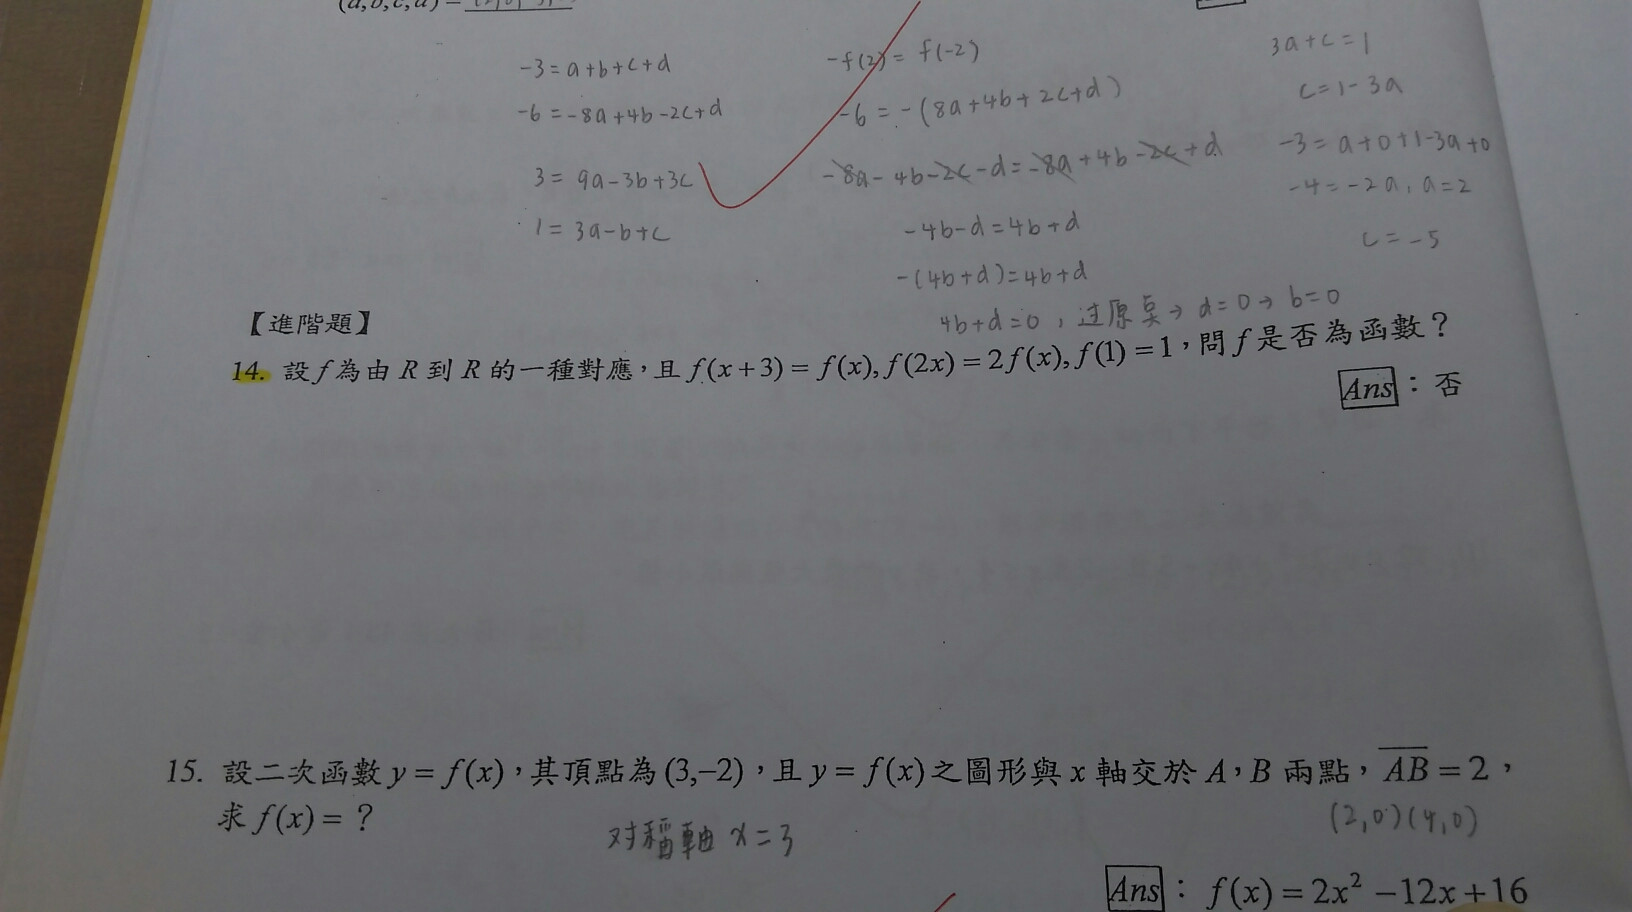 (a,b,c,d) =
-3 = a+b+c+d
-6 = -8a+4b-2c+d
3 = 9a-3b+3c
1 = 3a-b+c
-f(2) = f(-2)
-6 = -(8a+4b+2c+d)
-8a-4b-2c-d = -8a+4b-2c+d
-4b-d = 4b+d
-(4b+d) = 4b+d
4b+d=0, 过原点→d=0→b=0
3a+c=1
c=1-3a
-3 = a+0+1-3a+0
-4 = -2a, a=2
c = -5
【進階題】
14. 設 f 為由 R 到 R 的一種對應,且 f(x+3) = f(x), f(2x) = 2f(x), f(1) = 1,問 f 是否為函數?
Ans:否
15. 設二次函數 y = f(x),其頂點為 (3,–2),且 y = f(x) 之圖形與 x 軸交於 A,B 兩點,A̅B̅ = 2,
求 f(x) = ?
(2,0)(4,0)
对稱軸 x=3
Ans:f(x) = 2x² –12x +16